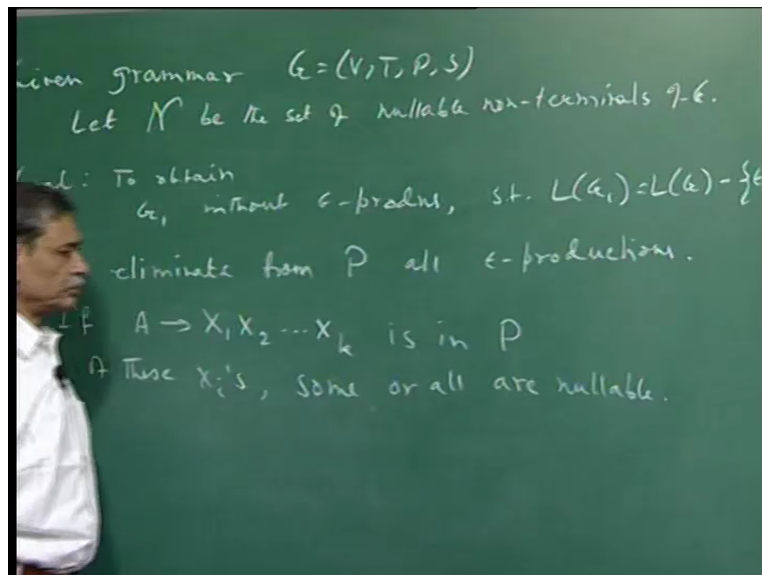 iven grammar G = (V, T, P, S)
Let N be the set of nullable non-terminals of G.
al: To obtain
G₁ without ϵ-produns, s.t. L(G₁) = L(G) - {ϵ
eliminate from P all ϵ-productions.
If A → X₁ X₂ ... Xₖ is in P
These Xᵢ's, some or all are nullable.